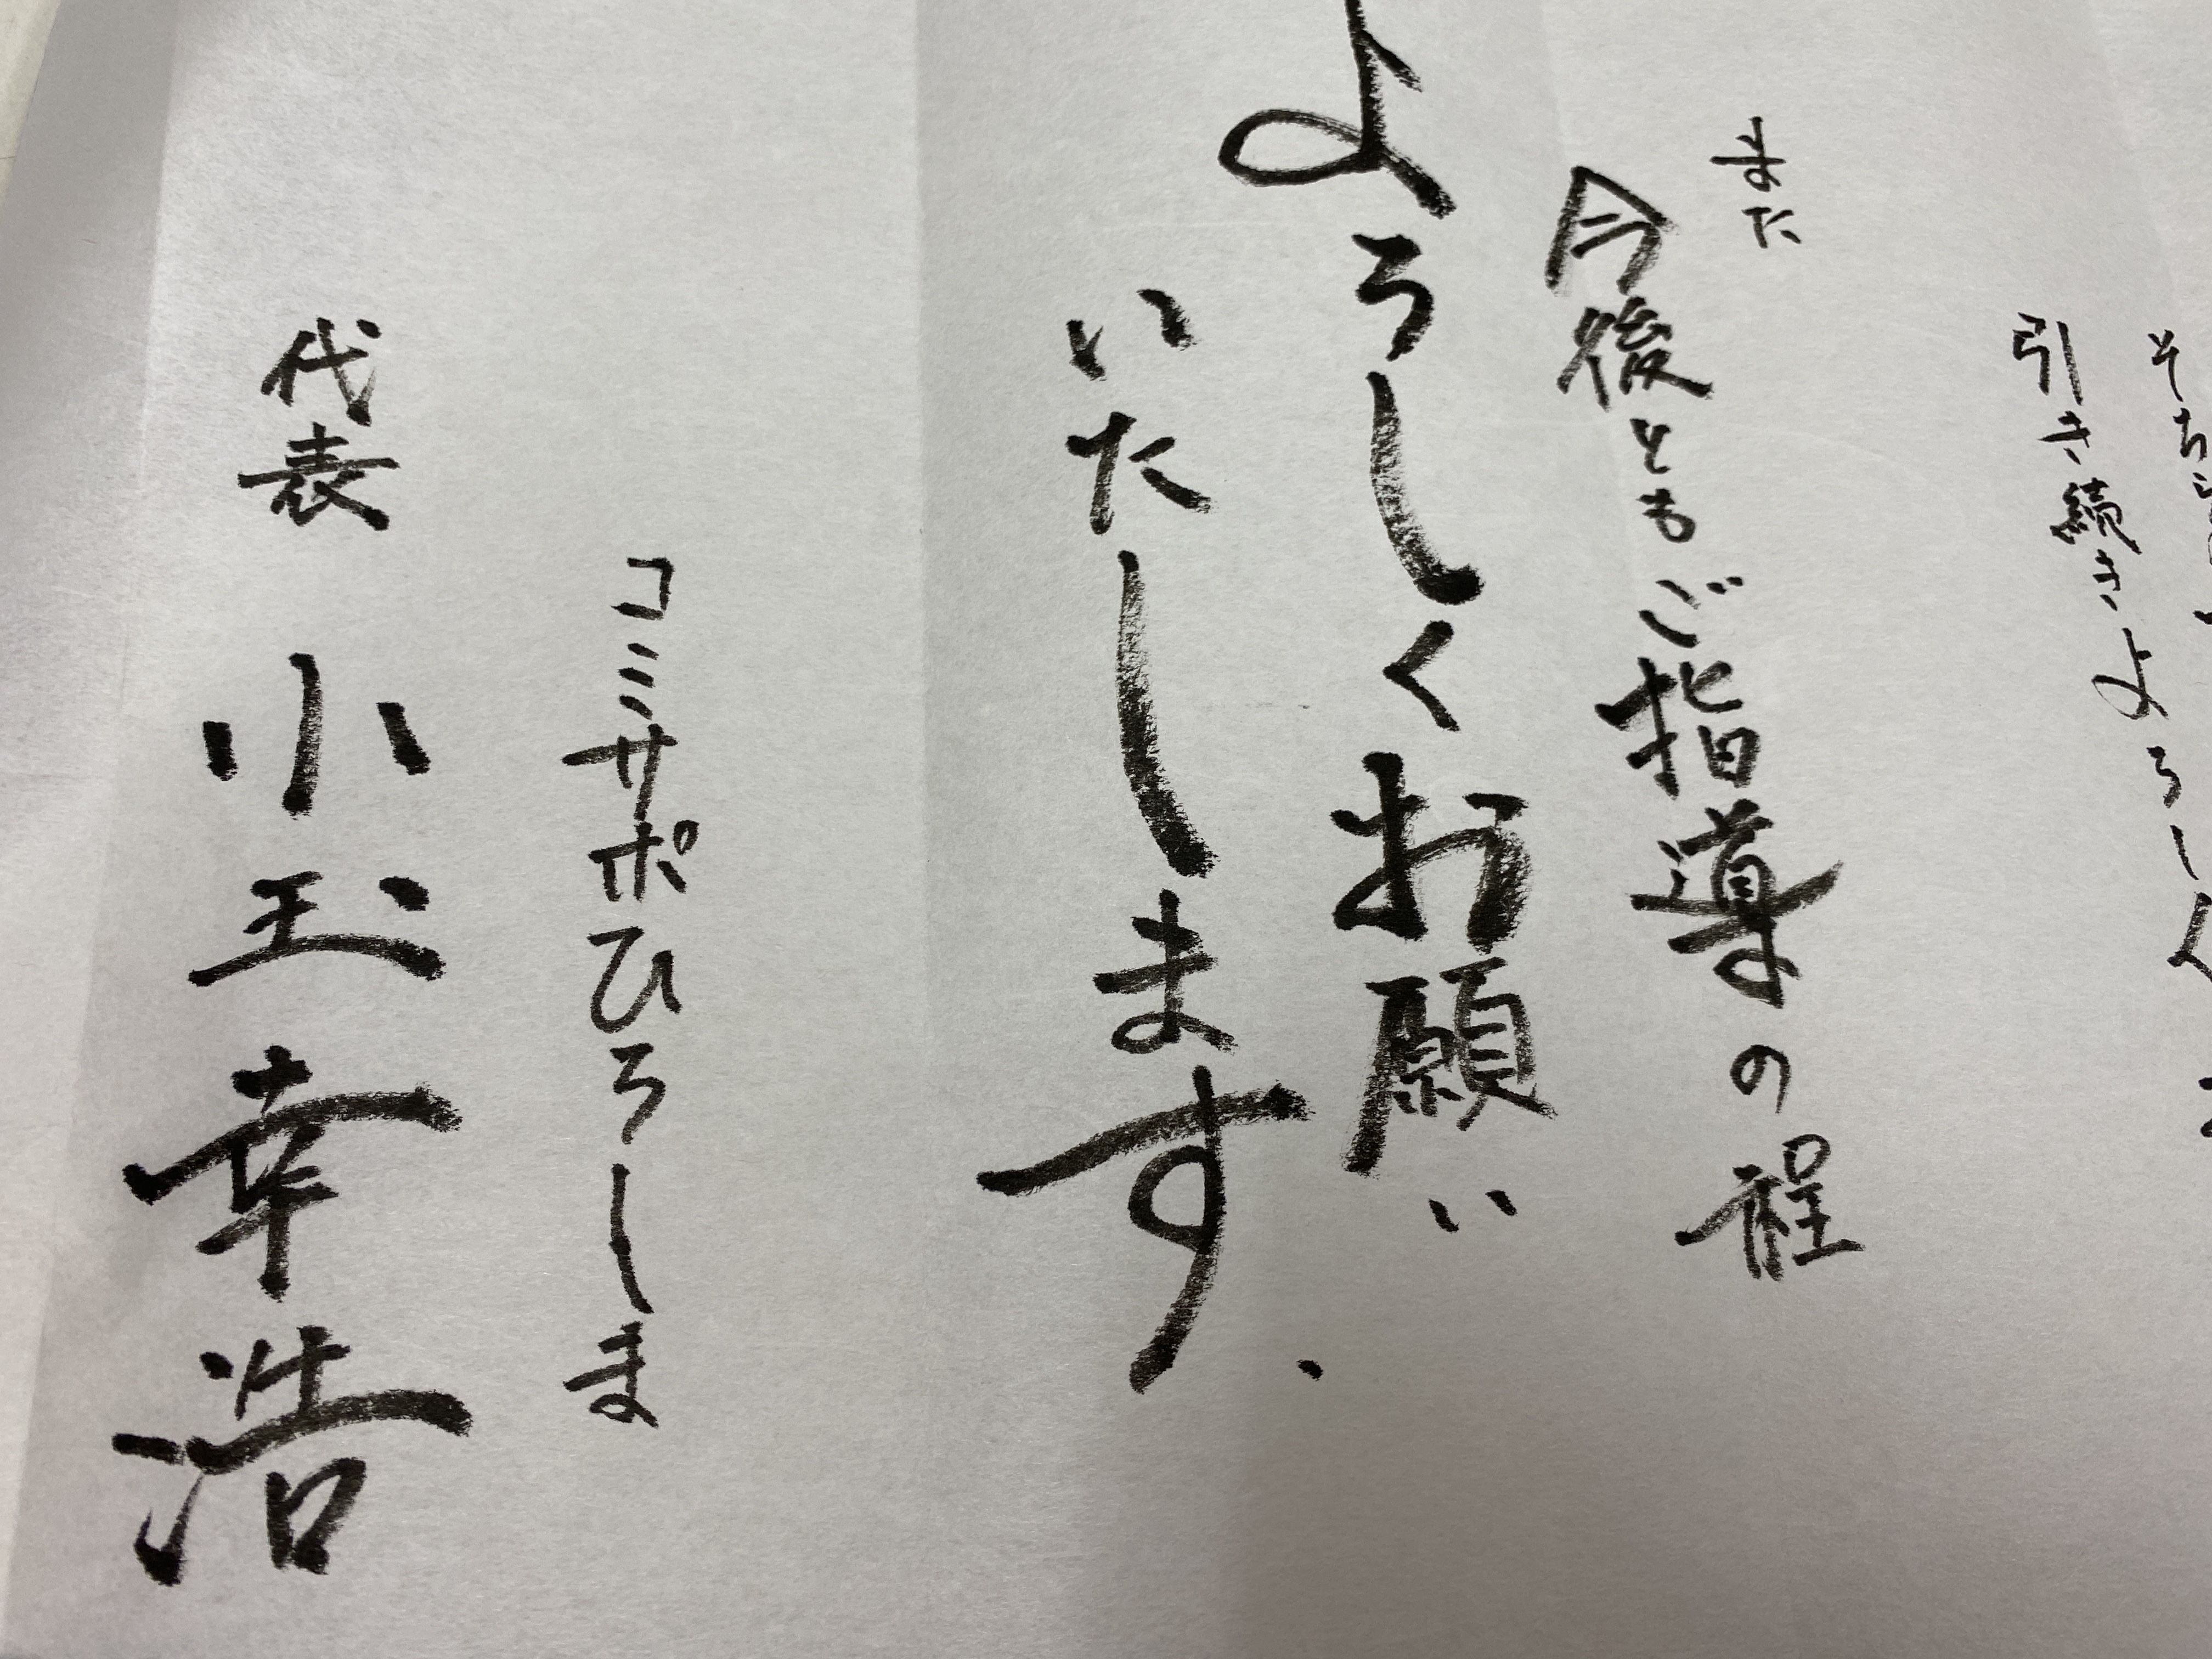 そちら
引き続きよろしく
また
今後ともご指導の程
よろしくお願い
いたします.
コミサポひろしま
代表 小玉幸浩